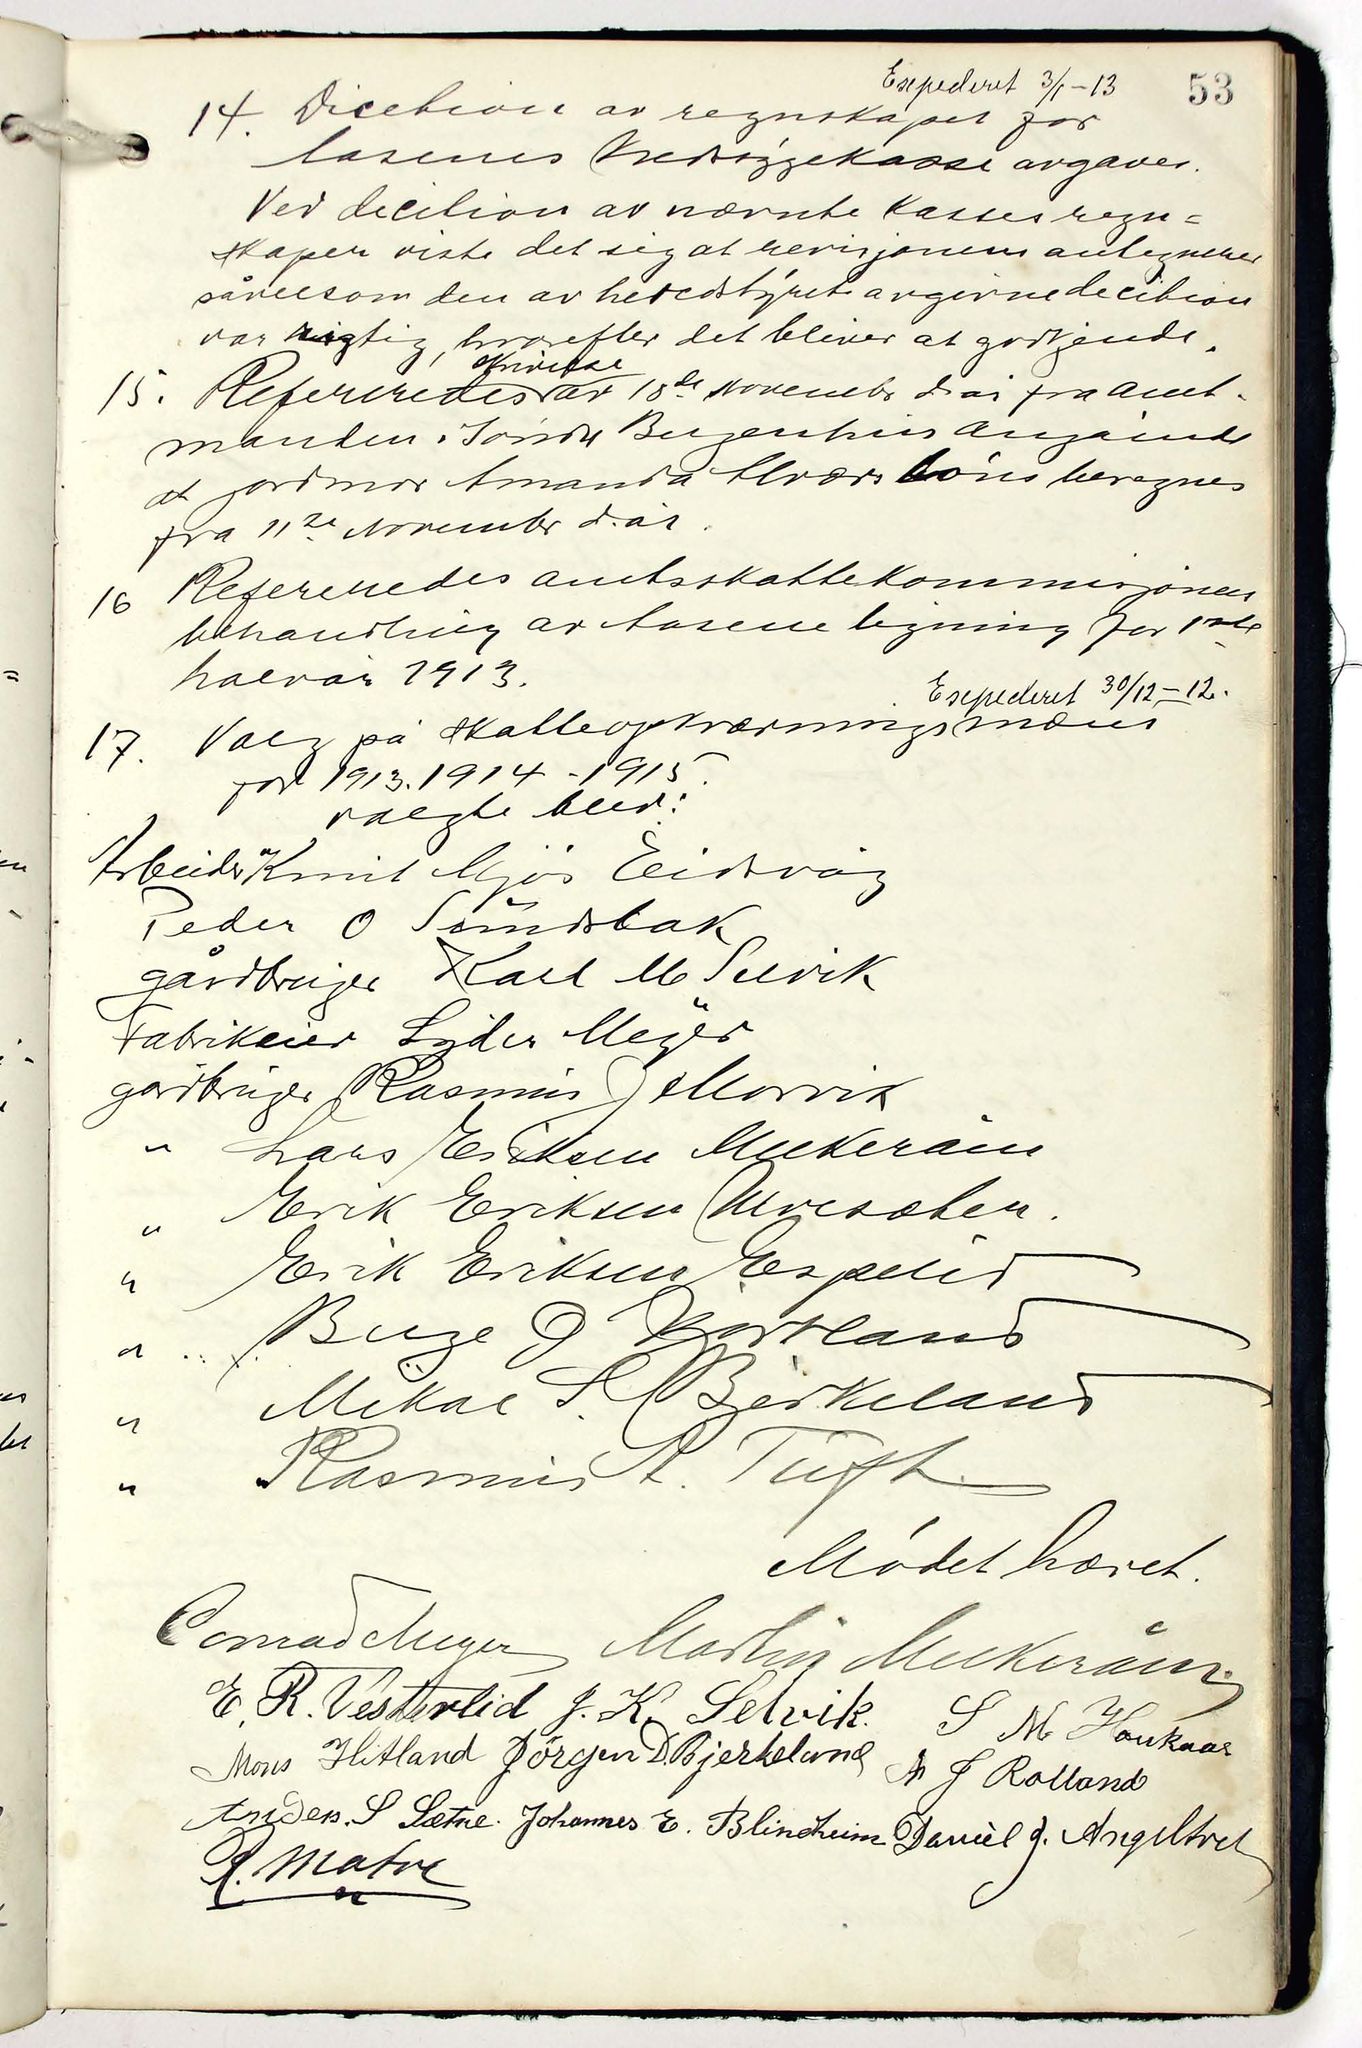 Expederet 3/1-13
53
14. Dicetion av regnskapet for
Aasenes kredsygekasse avgaves.
Ved decition av nævnte kasses regn=
skaper viste det sig at revisjonens antegnelser
såvelsom den av heredstyret avgivne decition
var rigtig, hvorefter det bliver at godkjende.
skrivelse
15. Refereredes av 18de november d.år fra amt-
manden i Søndre Bergenhus angående
at jordmor Amanda løn beregnes
fra 11te November d.år.
16 Refereredes amtsskattekommisjonens
behandling av Aasene ligning for 1ste
halvår 1913.
Expederet 30/12-12.
17. Valg på skatteopkrævningsmæns
for 1913. 1914 - 1915.
valgte blev:
Arbeider Knut Mjøs Eidsvåg
Peder O Sundsbak
gårdbruger Karl M Selvik
Fabrikeier Lyder Meyer
gårdbruger Rasmus J Morvik
" Lars Eriksen Mukeråsen
" Erik Eriksen
" Erik Eriksen Espelid
" Børge O Hjortland
" Mikal S. Birkeland
" Rasmus A. Tuft
Mødet hævet.
Conrad Meyer Martin Mukeråsen
E. R. Vesterlid J. K. Selvik. S M Haukaas
Mons Hitland Jørgen D Bjerkeland A J Rolland
Anders. S Sætre. Johannes E. Blindheim Daniel J. Angeltvet
R. Matre